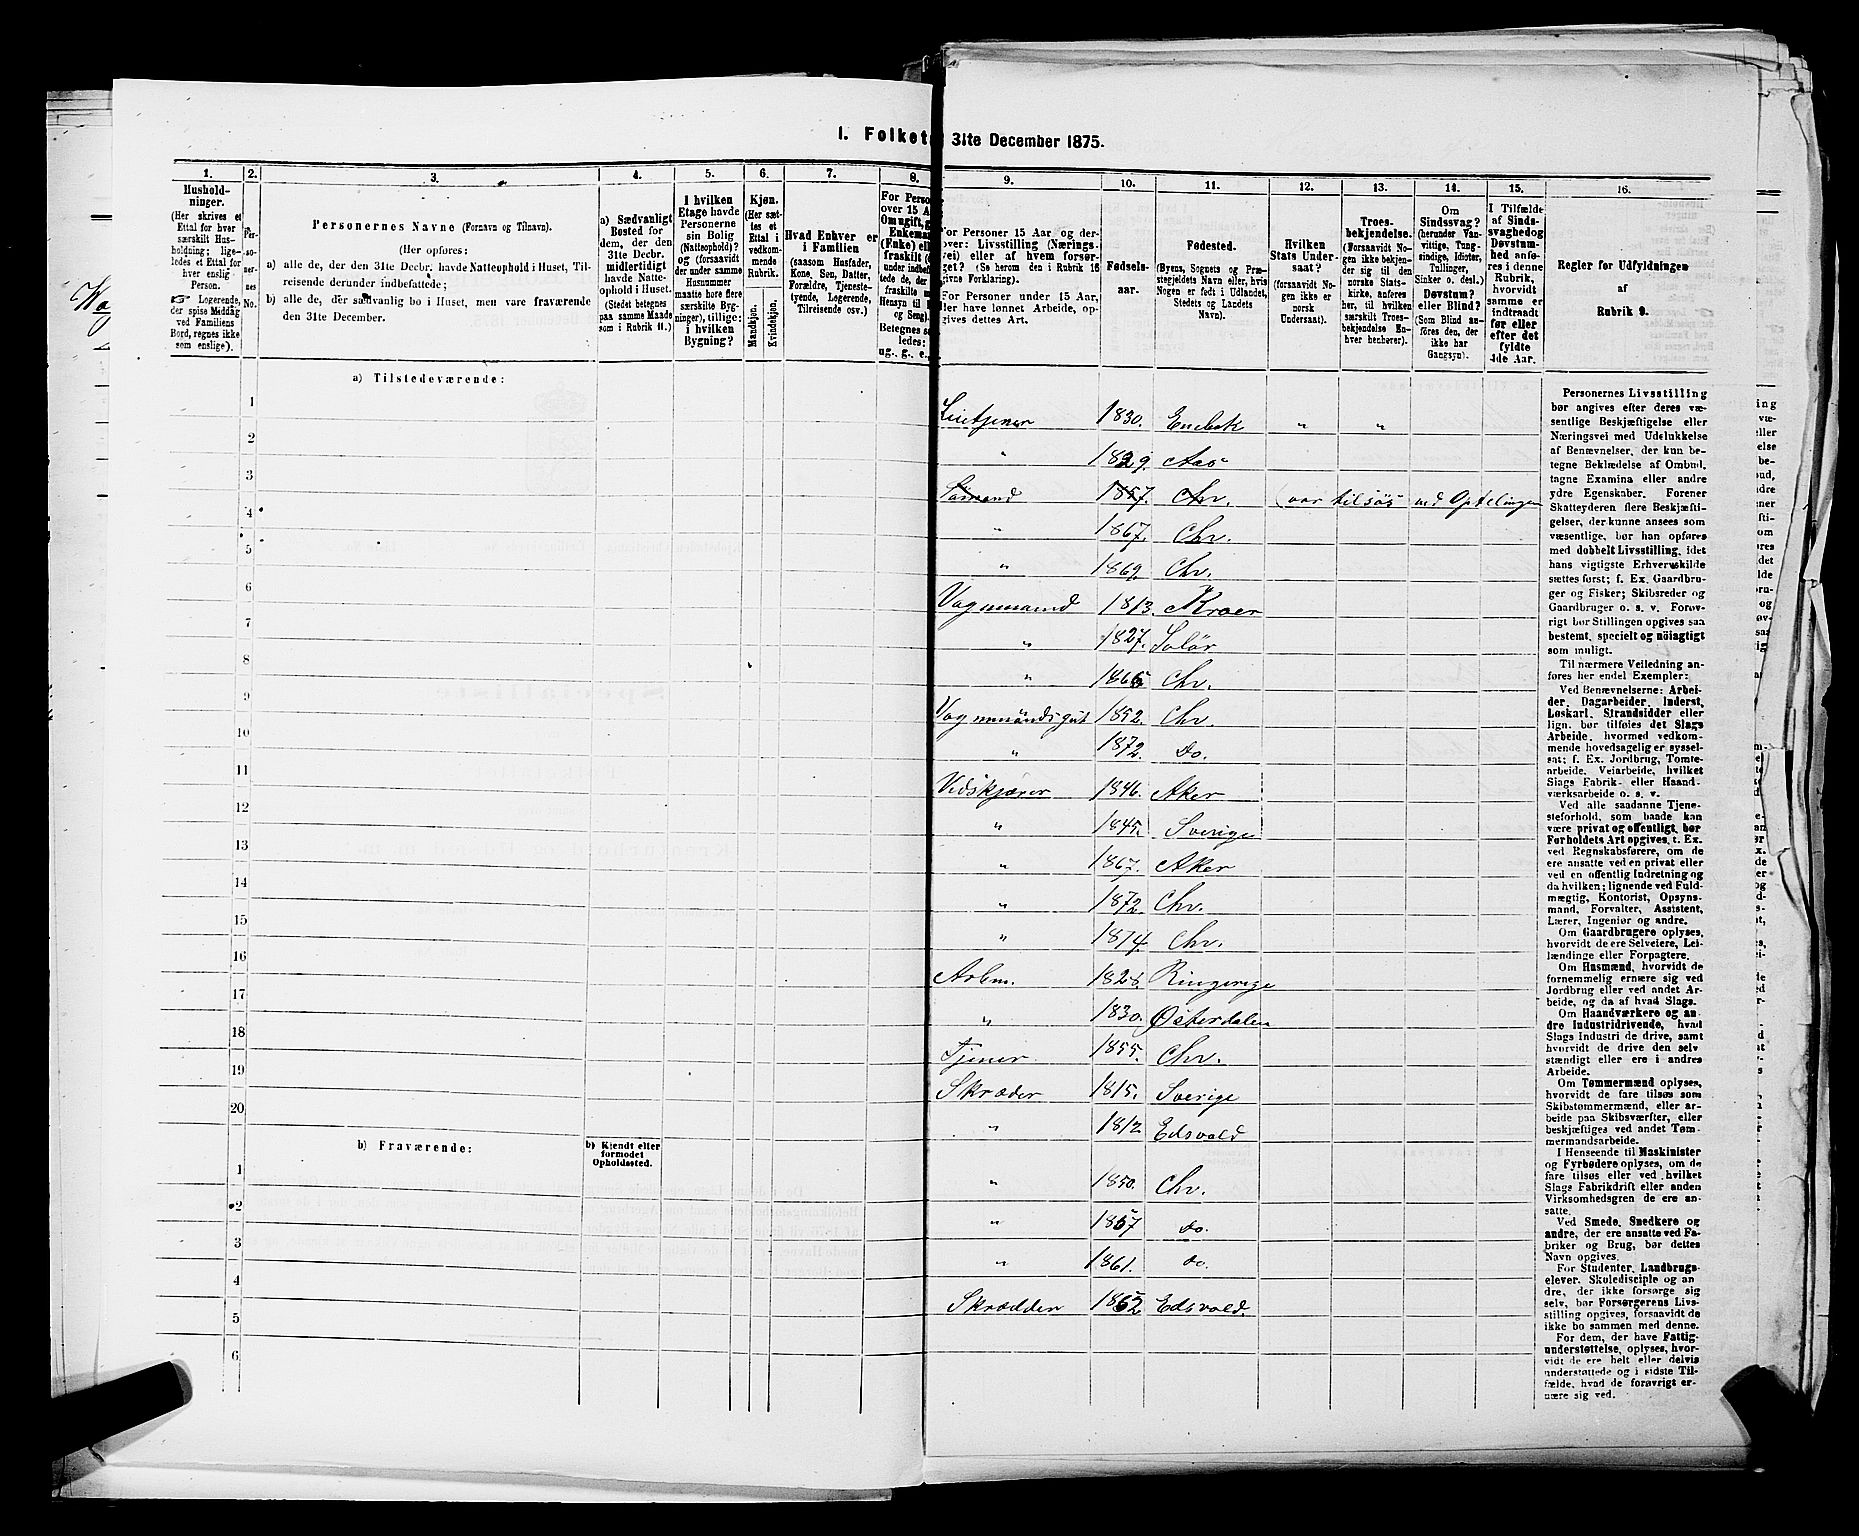 I. Folketæ 31te December 1875.
1. 2. 3. 4. 5. 6. 7. 8. 9. 10. 11. 12. 13. 14. 15. 16.
Hushold-
ninger.
(Her skrives et
Ettal for hver
særskilt Hus-
holdning; lige-
ledes et Ettal for
hver enslig
Person.
☞ Logerende,
der spise Middag
ved Familiens
Bord, regnes ikke
som enslige).
Per-
so-
ner-
nes
No.
Personernes Navne (Fornavn og Tilnavn).
(Her opføres:
a) alle de, der den 31te Decbr. havde Natteophold i Huset, Til-
reisende derunder indbefattede;
b) alle de, der sædvanlig bo i Huset, men vare fraværende
den 31te December.
a) Sædvanligt
Bosted for
dem, der den
31te Decbr.
midlertidigt
havde Natte-
ophold i Huset.
(Stedet betegnes
paa samme Maade
som i Rubrik 11.)
I hvilken
Etage havde
Personerne
sin Bolig
(Natteophold)?
og (forsaavidt
der under samme
Husnummer
maatte høre flere
særskilte Byg-
ninger), tillige:
i hvilken
Bygning?
Kjøn.
(Her sæt-
tes et
Ettal i
vedkom-
mende
Rubrik.
Mandkjøn.
Kvindekjøn.
Hvad Enhver er
i Familien
(saasom Husfader,
Kone, Søn, Datter,
Forældre, Tjeneste-
tyende, Logerende,
Tilreisende osv.)
For Perso
over 15 A
Om ugift, g
Enkema
(Enke) ell
fraskilt (
under indbef
tede de, der
fraskilte
Hensyn til
og Seng).
Betegnes s
ledes:
ug., g., e.,
For Personer 15 Aar og der-
over: Livsstilling (Nærings-
vei) eller af hvem forsør-
get? (Se herom den i Rubrik 16
givne Forklaring).
For Personer under 15 Aar,
der have lønnet Arbeide, op-
gives dettes Art.
Fødsels-
aar.
Fødested.
(Byens, Sognets og Præ-
stegjeldets Navn eller, hvis
Nogen er født i Udlandet,
Stedets og Landets
Navn).
Hvilken
Stats Under-
saat?
(forsaavidt No-
gen ikke er
norsk
Undersaat).
Troes-
bekjendelse.
(Forsaavidt No-
gen ikke bekjen-
der sig til den
norske Stats-
kirke, anføres
her, til hvilken
særskilt Troes-
bekjendelse En-
hver henhører).
Om
Sindssvag?
(herunder Van-
vittige, Tung-
sindige, Idioter,
Tullinger,
Sinker o. desl.)
Døvstum?
eller Blind?
(Som Blind an-
føres den, der
ikke har
Gangsyn).
I Tilfælde
af Sinds-
svaghed og
Døvstum-
hed anfø-
res i denne
Rubrik,
hvorvidt
samme er
indtraadt
før eller
efter det
fyldte
4de Aar.
Regler for Udfyldningen
af
Rubrik 9.
a) Tilstedeværende:
1 Leietjener 1830. Enebak „ „
2 „ 1829. Aas
3 Sømand 1857. Chr. (var tilsøs ved Optelingen
4 „ 1867. Chr.
5 „ 1869. Chr.
6 Vognmand 1813. Kroer
7 „ 1827. Solør
8 „ 1865. Chr.
9 Vognmandsgut 1852. Chr.
10 „ 1872. Do.
11 Vedskjærer 1846. Aker
12 „ 1845. Sverige
13 „ 1867. Aker
14 „ 1872. Chr.
15 „ 1874. Chr.
16 Arbm. 1828. Ringerige
17 „ 1830. Østerdalen
18 Tjener 1855. Chr.
19 Skræder 1815. Sverige
20 „ 1812 Edsvold
b) Fraværende:
b) Kjendt eller
formodet
Opholdssted.
1 „ 1850. Chr.
2 „ 1857 Do.
3 „ 1861. do.
4 Skrædder 1852 Edsvold.
5
6
Personernes Livsstilling
bør angives efter deres væ-
sentlige Beskjæftigelse eller
Næringsvei med Udelukkelse
af Benævnelser, der kun be-
tegne Beklædelse af Ombud,
tagne Examina eller andre
ydre Egenskaber. Forener
Skatteyderen flere Beskjæfti-
gelser, der kunne ansees som
væsentlige, bør han opføres
med dobbelt Livsstilling, idet
hans vigtigste Erhvervskilde
sættes først; f. Ex. Gaardbru-
ger og Fisker; Skibsreder og
Gaardbruger o. s. v. Forøv-
rigt bør Stillingen opgives saa
bestemt, specielt og nøiagtigt
som muligt.
Til nærmere Veiledning an-
føres her endel Exempler:
Ved Benævnelserne: Arbei-
der, Dagarbeider, Inderst,
Løskarl, Strandsidder eller
lign. bør tilføies det Slags
Arbeide, hvormed vedkom-
mende hovedsagelig er syssel-
sat; f. Ex. Jordbrug, Tomte-
arbeide, Veiarbeide, hvilket
Slags Fabrik- eller Haand-
værksarbeide o. s. v.
Ved alle saadanne Tjene-
steforhold, som baade kan
være privat og offentligt, bør
Forholdets Art opgives, t. Ex.
ved Regnskabsførere, om de
ere ansatte ved en privat eller
ved en offentlig Indretning og
da hvilken; lignende ved Fuld-
mægtig, Kontorist, Opsyns-
mand, Forvalter, Assistent,
Lærer, Ingeniør og andre.
Om Gaardbrugere oplyses,
hvorvidt de ere Selveiere, Lei-
lændinge eller Forpagtere.
Om Husmænd, hvorvidt de
fornemmelig ernære sig ved
Jordbrug eller ved andet Ar-
beide, og da af hvad Slags.
Om Haandværkere og an-
dre Industridrivende, hvad
Slags Industri de drive, samt
hvorvidt de drive den selv
stændigt eller ere i andres
Arbeide.
Om Tømmermænd oplyses,
hvorvidt de fare tilsøs som
Skibstømmermænd, eller ar-
beide paa Skibsværfter, eller
beskjæftiges ved andet Tøm-
mermandsarbeide.
I Henseende til Maskinister
og Fyrbødere oplyses, om de
fare tilsøs eller ved hvilket
Slags Fabrikdrift eller anden
Virksomhedsgren de ere an-
satte.
Ved Smede, Snedkere og
andre, der ere ansatte ved Fa-
briker og Brug, bør dettes
Navn opgives.
For Studenter, Landbrugs-
elever, Skoledisciple og an
dre, der ikke forsørge sig
selv, bør Forsørgerens Livs-
stilling opgives, forsaavidt de
ikke bo sammen med denne.
For dem, der have Fattig-
understøttelse, oplyses, hvor-
vidt de ere helt eller delvis
understøttede og i sidste Til-
fælde, hvad de forøvrigt er-
nære sig ved.